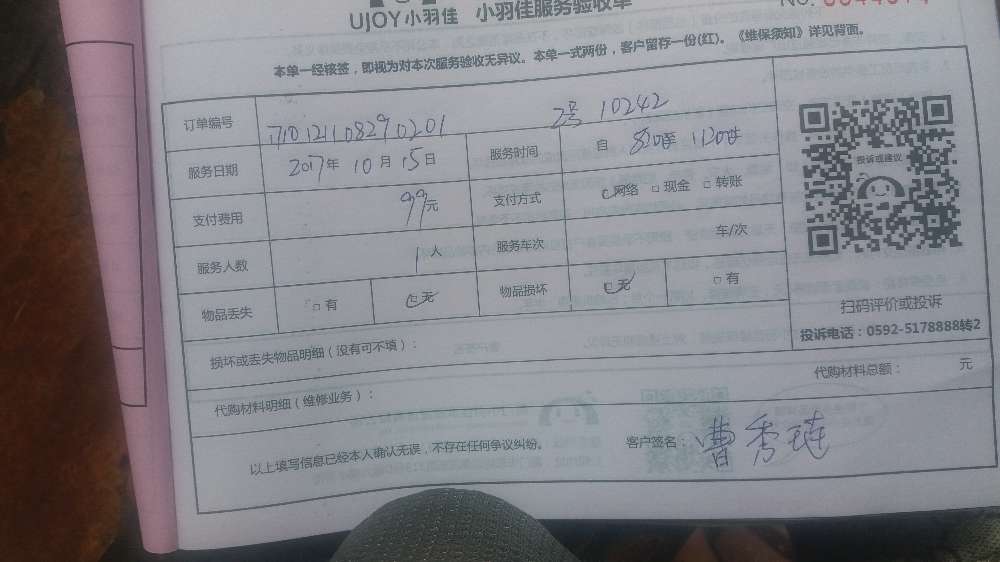 UJOY小羽佳 小羽佳服务验收单
本单一经核签，即视为对本次服务验收无异议。本单一式两份，客户留存一份(红)。《维保须知》详见背面。
订单编号 710121108290201 2号 10242
服务日期 2017年 10月 15日 服务时间 自 820至 1120止
支付费用 99元 支付方式 网络 □现金 □转账
投诉或建议
服务人数 1人 服务车次 车/次
物品丢失 □有 无 物品损坏 无 □有
扫码评价或投诉
投诉电话：0592-5178888转2
损坏或丢失物品明细（没有可不填）：
代购材料明细（维修业务）： 代购材料总额： 元
以上填写信息已经本人确认无误，不存在任何争议纠纷。 客户签名：曹秀琏